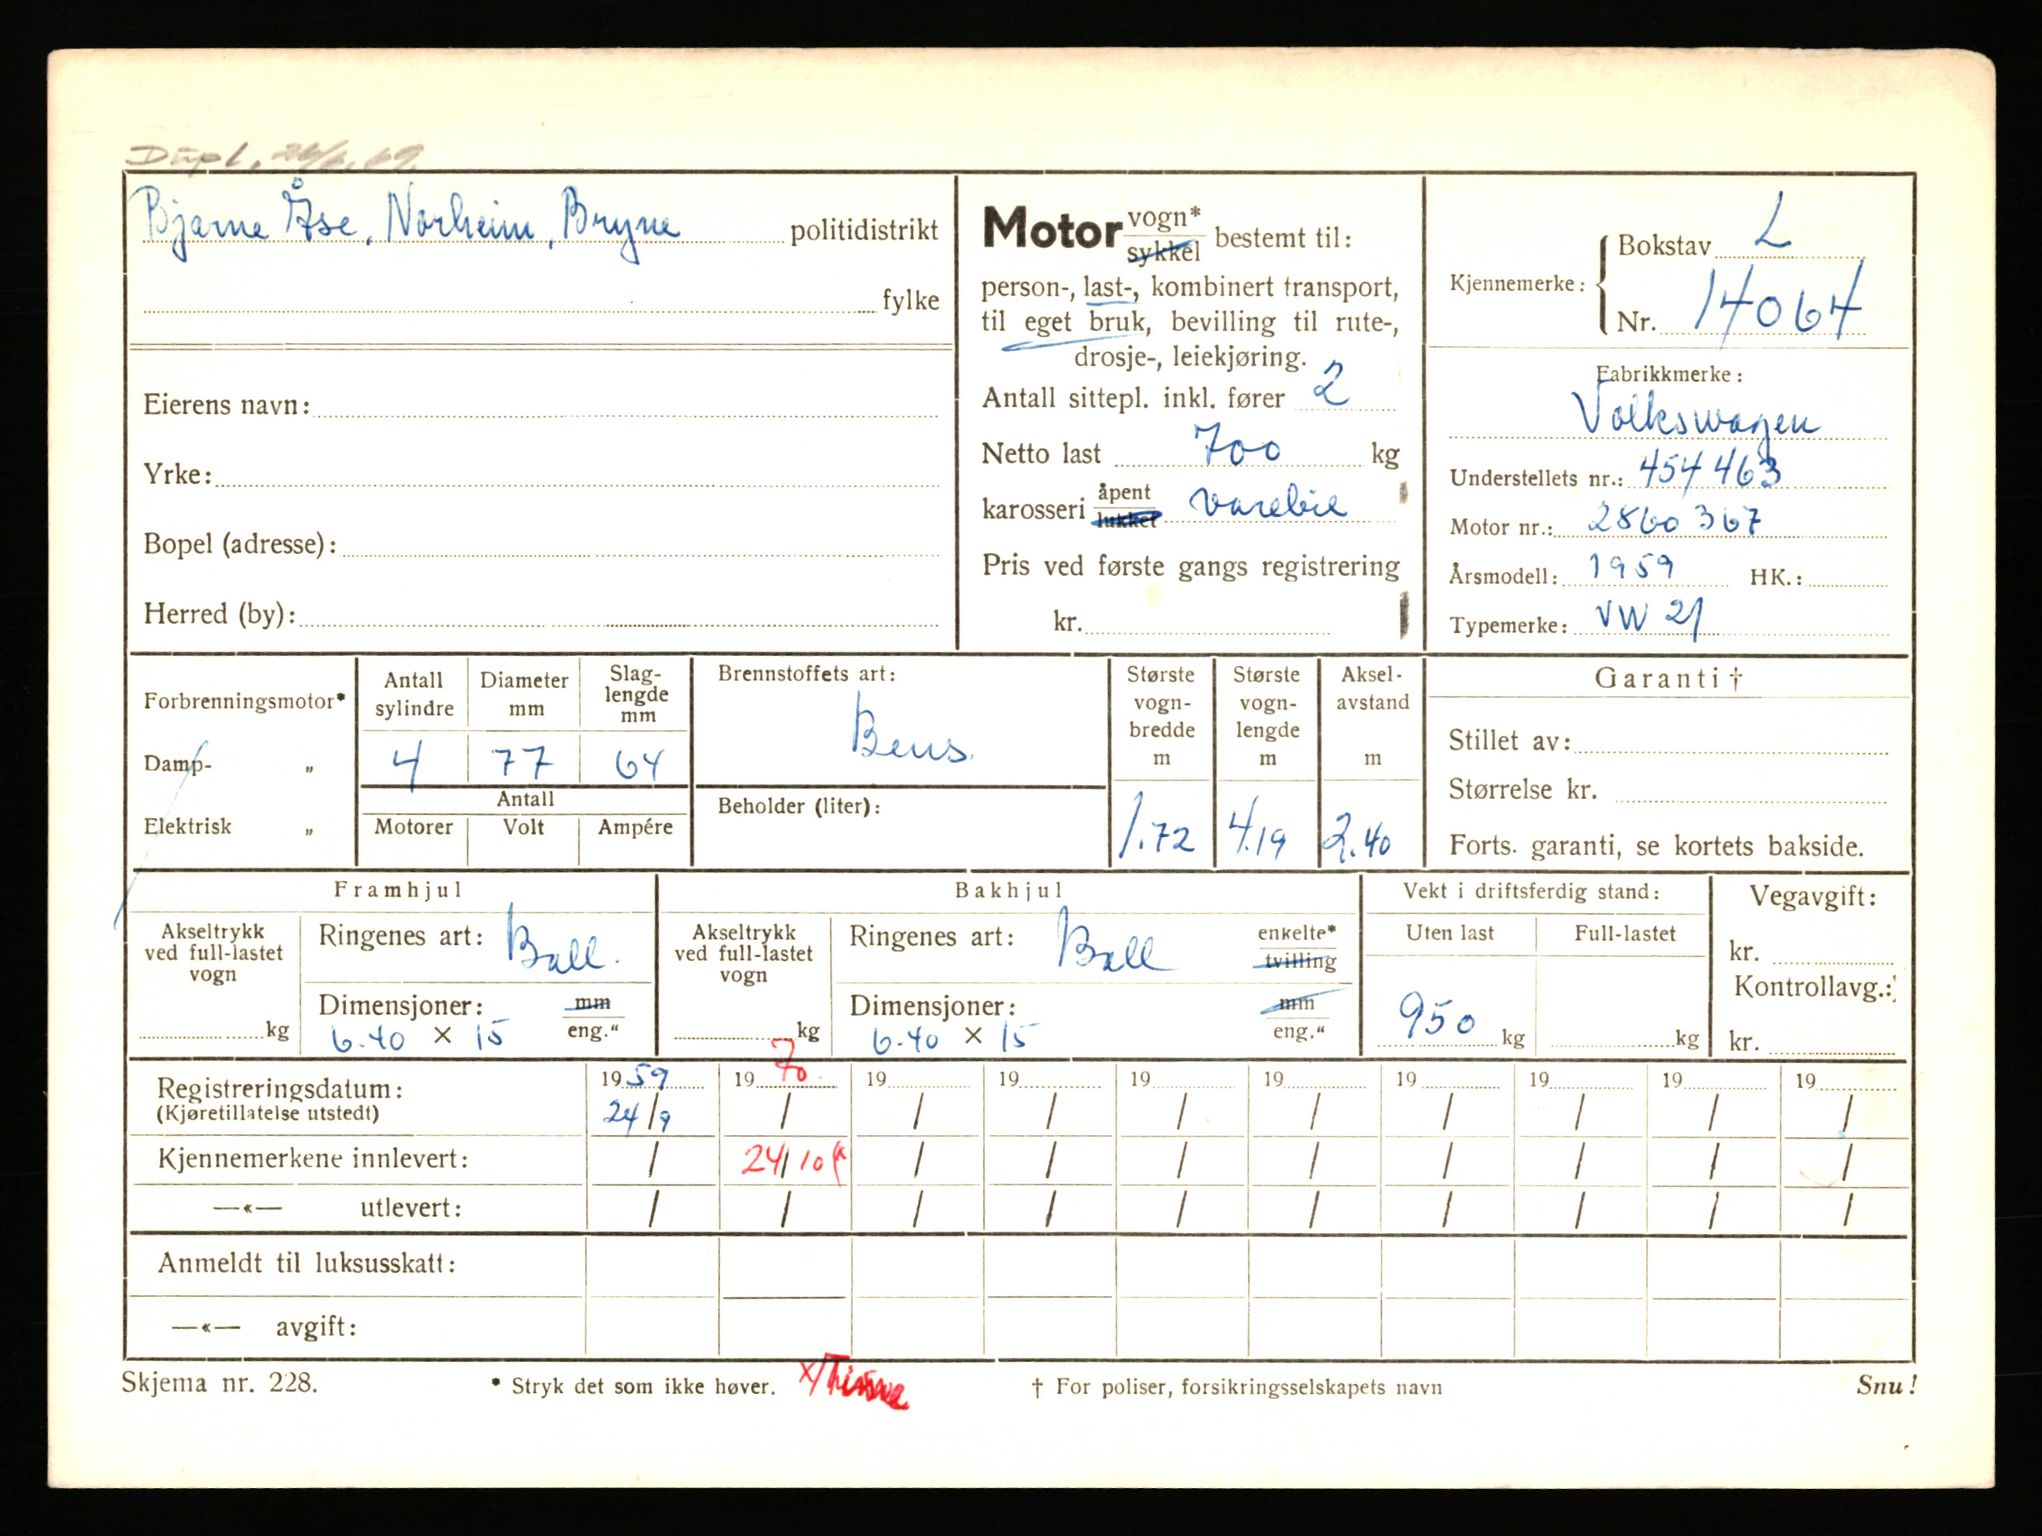 Dupl. 26/6.69.
Bjarne Åse, Norheim, Bryne politidistrikt
fylke
Eierens navn:
Yrke:
Bopel (adresse):
Herred (by):
Motor vogn* sykkel bestemt til:
person-, last-, kombinert transport,
til eget bruk, bevilling til rute-,
drosje-, leiekjøring.
Antall sittepl. inkl. fører 2
Netto last 700 kg
karosseri åpent lukket varebil
Pris ved første gangs registrering
kr.
Kjennemerke: Bokstav L
Nr. 14064
Fabrikkmerke:
Volkswagen
Understellets nr.: 454463
Motor nr.: 2860367
Årsmodell: 1959 HK.:
Typemerke: VW 21
Forbrenningsmotor*
Damp- „
Elektrisk „
Antall sylindre Diameter mm Slag-lengde mm
4 77 64
Antall
Motorer Volt Ampére
Brennstoffets art:
Bens.
Beholder (liter):
Største vogn-bredde m Største vogn-lengde m Aksel-avstand m
1.72 4.19 2.40
Garanti †
Stillet av:
Størrelse kr.
Forts. garanti, se kortets bakside.
Framhjul
Akseltrykk ved full-lastet vogn
kg
Ringenes art: Ball.
Dimensjoner: mm eng."
6.40 × 15
Bakhjul
Akseltrykk ved full-lastet vogn
kg
Ringenes art: Ball enkelte* tvilling
Dimensjoner: mm eng."
6.40 × 15
Vekt i driftsferdig stand:
Uten last Full-lastet
950 kg kg
Vegavgift:
kr.
Kontrollavg.:
kr.
Registreringsdatum: 1959 1970. 19 19 19 19 19 19 19 19
(Kjøretillatelse utstedt) 24/9 / / / / / / / / /
Kjennemerkene innlevert: / 24/10 x / / / / / / / /
—«— utlevert: / / / / / / / / / /
Anmeldt til luksusskatt:
—«— avgift:
Skjema nr. 228. * Stryk det som ikke høver. x/ † For poliser, forsikringsselskapets navn Snu!